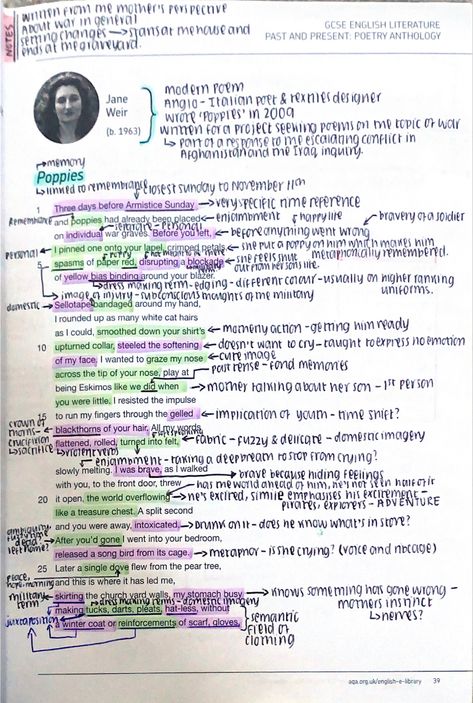 NOTES
written from the mother's perspective
About war in general
setting changes → starts at the house and
ends at the graveyard.
GCSE ENGLISH LITERATURE
PAST AND PRESENT: POETRY ANTHOLOGY
Jane
Weir
(b. 1963)
modern poem
Anglo-Italian poet & textiles designer
wrote 'Poppies' in 2009
written for a project seeking poems on the topic of war
↳ part of a response to the escalating conflict in
Afghanistan and the Iraq inquiry.
↱memory
Poppies
↳ linked to remembrance
closest sunday to November 11th
1 Three days before Armistice Sunday
very specific time reference
Remembrance
and poppies had already been placed
enjambment
happy life
bravery of a soldier
personal
on individual war graves. Before you left,
before anything went wrong
Personal
I pinned one onto your lapel, crimped petals,
she put a poppy on him which makes him
metaphorically remembered.
5 spasms of paper red, disrupting a blockade
she feels shut
out from her sons life.
of yellow bias binding around your blazer.
dress making term - edging - different colour - usually on higher ranking
uniforms.
image of injury - subconscious thoughts of the military
domestic
Sellotape bandaged around my hand,
I rounded up as many white cat hairs
as I could, smoothed down your shirt's
motherly action - getting him ready
10 upturned collar, steeled the softening
doesn't want to cry - taught to express no emotion
of my face. I wanted to graze my nose
cute image
across the tip of your nose, play at
past tense - fond memories
being Eskimos like we did when
mother talking about her son - 1st person
you were little. I resisted the impulse
15 to run my fingers through the gelled
implication of youth - time shift?
crown of
thorns -
crucifixion
↳ sacrifice
blackthorns of your hair. All my words
flattened, rolled, turned into felt,
fabric - fuzzy & delicate - domestic imagery
violent verbs
enjambment - taking a deep breath to stop from crying?
slowly melting. I was brave, as I walked
brave because hiding feelings
with you, to the front door, threw
has the world ahead of him, he's not seen half of it
20 it open, the world overflowing
he's excited, simile emphasises his excitement -
pirates, explorers - ADVENTURE
like a treasure chest. A split second
and you were away, intoxicated.
drunk on it - does he know what's in store?
ambiguity
dead?
left home?
After you'd gone I went into your bedroom,
released a song bird from its cage.
metaphor - is she crying? (voice and ribcage)
25 Later a single dove flew from the pear tree,
peace,
hope, mourning
and this is where it has led me,
military
term
skirting the church yard walls, my stomach busy
knows something has gone wrong -
mothers instinct
↳ nerves?
dress making terms - domestic imagery
making tucks, darts, pleats, hat-less, without
juxtaposition
a winter coat or reinforcements of scarf, gloves.
semantic
field of
clothing
aqa.org.uk/english-e-library 39